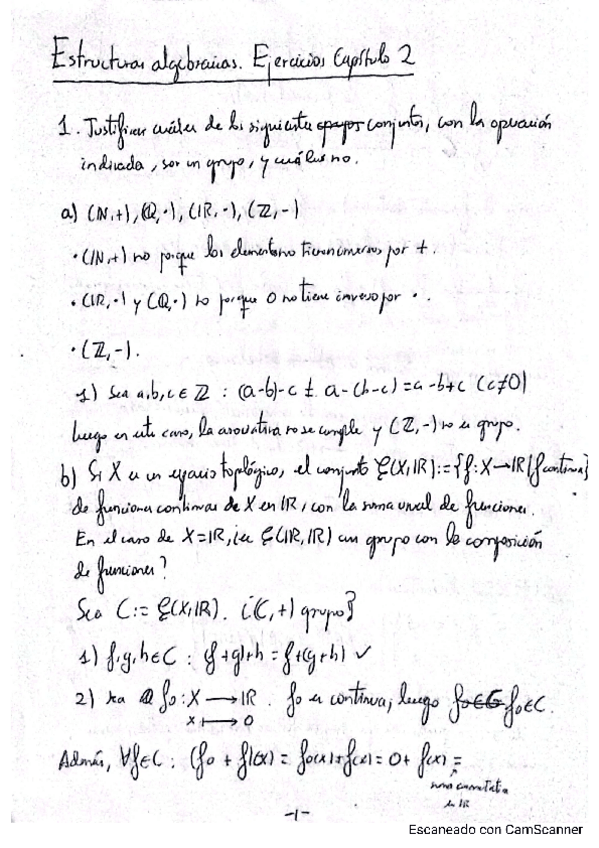 Estructuras algebraicas. Ejercicios Capítulo 2
1. Justificar cuáles de los siguientes conjuntos, con la operación
indicada, son un grupo, y cuáles no.
a) (ℕ,+), (ℚ,·), (ℝ,·), (ℤ,-)
· (ℕ,+) no porque los elementos no tienen inverso por +.
· (ℝ,·) y (ℚ,·) no porque 0 no tiene inverso por ·.
· (ℤ,-).
1) Sea a,b,c ∈ ℤ : (a-b)-c ≠ a-(b-c) = a-b+c (c≠0)
luego en este caso, la asociativa no se cumple y (ℤ,-) no es grupo.
b) Si X es un espacio topológico, el conjunto ξ(X,ℝ) := {f: X→ℝ | f continua}
de funciones continuas de X en ℝ, con la suma usual de funciones.
En el caso de X=ℝ, ¿es ξ(ℝ,ℝ) un grupo con la composición
de funciones?
Sea C := ξ(X,ℝ). ¿(C,+) grupo?
1) f,g,h∈C : (f+g)+h = f+(g+h) ✓
2) sea f₀: X → ℝ . f₀ es continua, luego f₀∈C.
x ↦ 0
Además, ∀f∈C : (f₀ + f)(x) = f₀(x)+f(x) = 0 + f(x) =
suma conmutativa
en ℝ
-1-
Escaneado con CamScanner